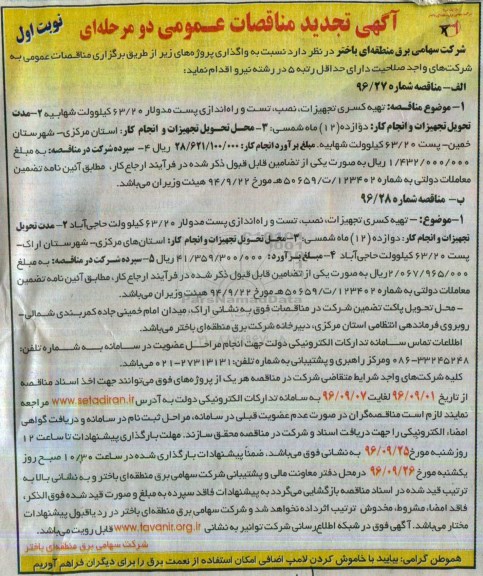 نوبت اول
آگهی تجدید مناقصات عمومی دو مرحله‌ای
شرکت سهامی برق منطقه‌ای باختر در نظر دارد نسبت به واگذاری پروژه‌های زیر از طریق برگزاری مناقصات عمومی به
شرکت‌های واجد صلاحیت دارای حداقل رتبه ۵ در رشته نیرو اقدام نماید:
الف- مناقصه شماره ۹۶/۲۷
۱- موضوع مناقصه: تهیه کسری تجهیزات، نصب، تست و راه‌اندازی پست مدولار ۶۳/۲۰ کیلوولت شهابیه ۲-مدت
تحویل تجهیزات و انجام کار: دوازده (۱۲) ماه شمسی: ۳- محل تحویل تجهیزات و انجام کار: استان مرکزی- شهرستان
خمین- پست ۶۳/۲۰ کیلوولت شهابیه. مبلغ برآورد انجام کار: ۲۸/۶۲۱/۱۰۰/۰۰۰ ریال ۴- سپرده شرکت در مناقصه: به مبلغ
۱/۴۳۲/۰۰۰/۰۰۰ ریال به صورت یکی از تضامین قابل قبول ذکر شده در فرآیند ارجاع کار، مطابق آئین نامه تضمین
معاملات دولتی به شماره ۱۲۳۴۰۲/ت/۵۰۶۵۹هـ مورخ ۹۴/۹/۲۲ هیئت وزیران می‌باشد.
ب- مناقصه شماره ۹۶/۲۸
۱-موضوع: – تهیه کسری تجهیزات، نصب، تست و راه‌اندازی پست مدولار ۶۳/۲۰ کیلوولت حاجی‌آباد ۲- مدت تحویل
تجهیزات و انجام کار: دوازده (۱۲) ماه شمسی: ۳- محل تحویل تجهیزات و انجام کار: استان‌های مرکزی- شهرستان اراک-
پست ۶۳/۲۰ کیلوولت حاجی‌آباد ۴- مبلغ برآورد: ۴۱/۳۵۹/۳۰۰/۰۰۰ ریال ۵- سپرده شرکت در مناقصه: به مبلغ
۲/۰۶۷/۹۶۵/۰۰۰ ریال به صورت یکی از تضامین قابل قبول ذکر شده در فرآیند ارجاع کار، مطابق آئین نامه تضمین
معاملات دولتی به شماره ۱۲۳۴۰۲/ت/۵۰۶۵۹هـ مورخ ۹۴/۹/۲۲ هیئت وزیران می‌باشد.
- محل تحویل پاکت تضمین شرکت در مناقصات فوق به نشانی اراک، میدان امام خمینی جاده کمربندی شمالی-
روبروی فرماندهی انتظامی استان مرکزی، دبیرخانه شرکت برق منطقه‌ای باختر می‌باشد.
اطلاعات تماس سامانه تدارکات الکترونیکی دولت جهت انجام مراحل عضویت در سامانه به شماره تلفن:
۰۸۶-۳۳۲۴۵۲۴۸ و مرکز راهبری و پشتیبانی به شماره تلفن: ۰۲۱-۲۷۳۱۳۱۳۱ می‌باشد.
کلیه شرکت‌های واجد شرایط متقاضی شرکت در مناقصه هر یک از پروژه‌های فوق می‌توانند جهت اخذ اسناد مناقصه
از تاریخ ۹۶/۰۹/۰۱ لغایت ۹۶/۰۹/۰۷ به سامانه تدارکات الکترونیکی دولت به آدرس www.setadiran.ir مراجعه
نمایند لازم است مناقصه‌گران در صورت عدم عضویت قبلی در سامانه، مراحل ثبت نام در سامانه و دریافت گواهی
امضاء الکترونیکی را جهت دریافت اسناد و شرکت در مناقصه محقق سازند. مهلت بارگذاری پیشنهادات تا ساعت ۱۲
روز شنبه مورخ ۹۶/۰۹/۲۵ به نشانی فوق می‌باشد. ضمناً پیشنهادات بارگذاری شده در ساعت ۱۰/۳۰ صبح روز
یکشنبه مورخ ۹۶/۰۹/۲۶ در محل دفتر معاونت مالی و پشتیبانی شرکت سهامی برق منطقه‌ای باختر و به نشانی بالا به
ترتیب قید شده در اسناد مناقصه بازگشایی می‌گردد به پیشنهادات فاقد سپرده به مبلغ و صورت قید شده فوق الذکر،
فاقد امضا، مشروط، مخدوش ترتیب اثر داده نخواهد شد و شرکت سهامی برق منطقه‌ای باختر در رد یا قبول پیشنهادات
مختار می‌باشد. آگهی فوق در شبکه اطلاع‌رسانی شرکت توانیر به نشانی www.tavanir.org.ir قابل رویت می‌باشد.
شرکت سهامی برق منطقه‌ای باختر
هموطن گرامی: بیایید با خاموش کردن لامپ اضافی امکان استفاده از نعمت برق را برای دیگران فراهم آوریم